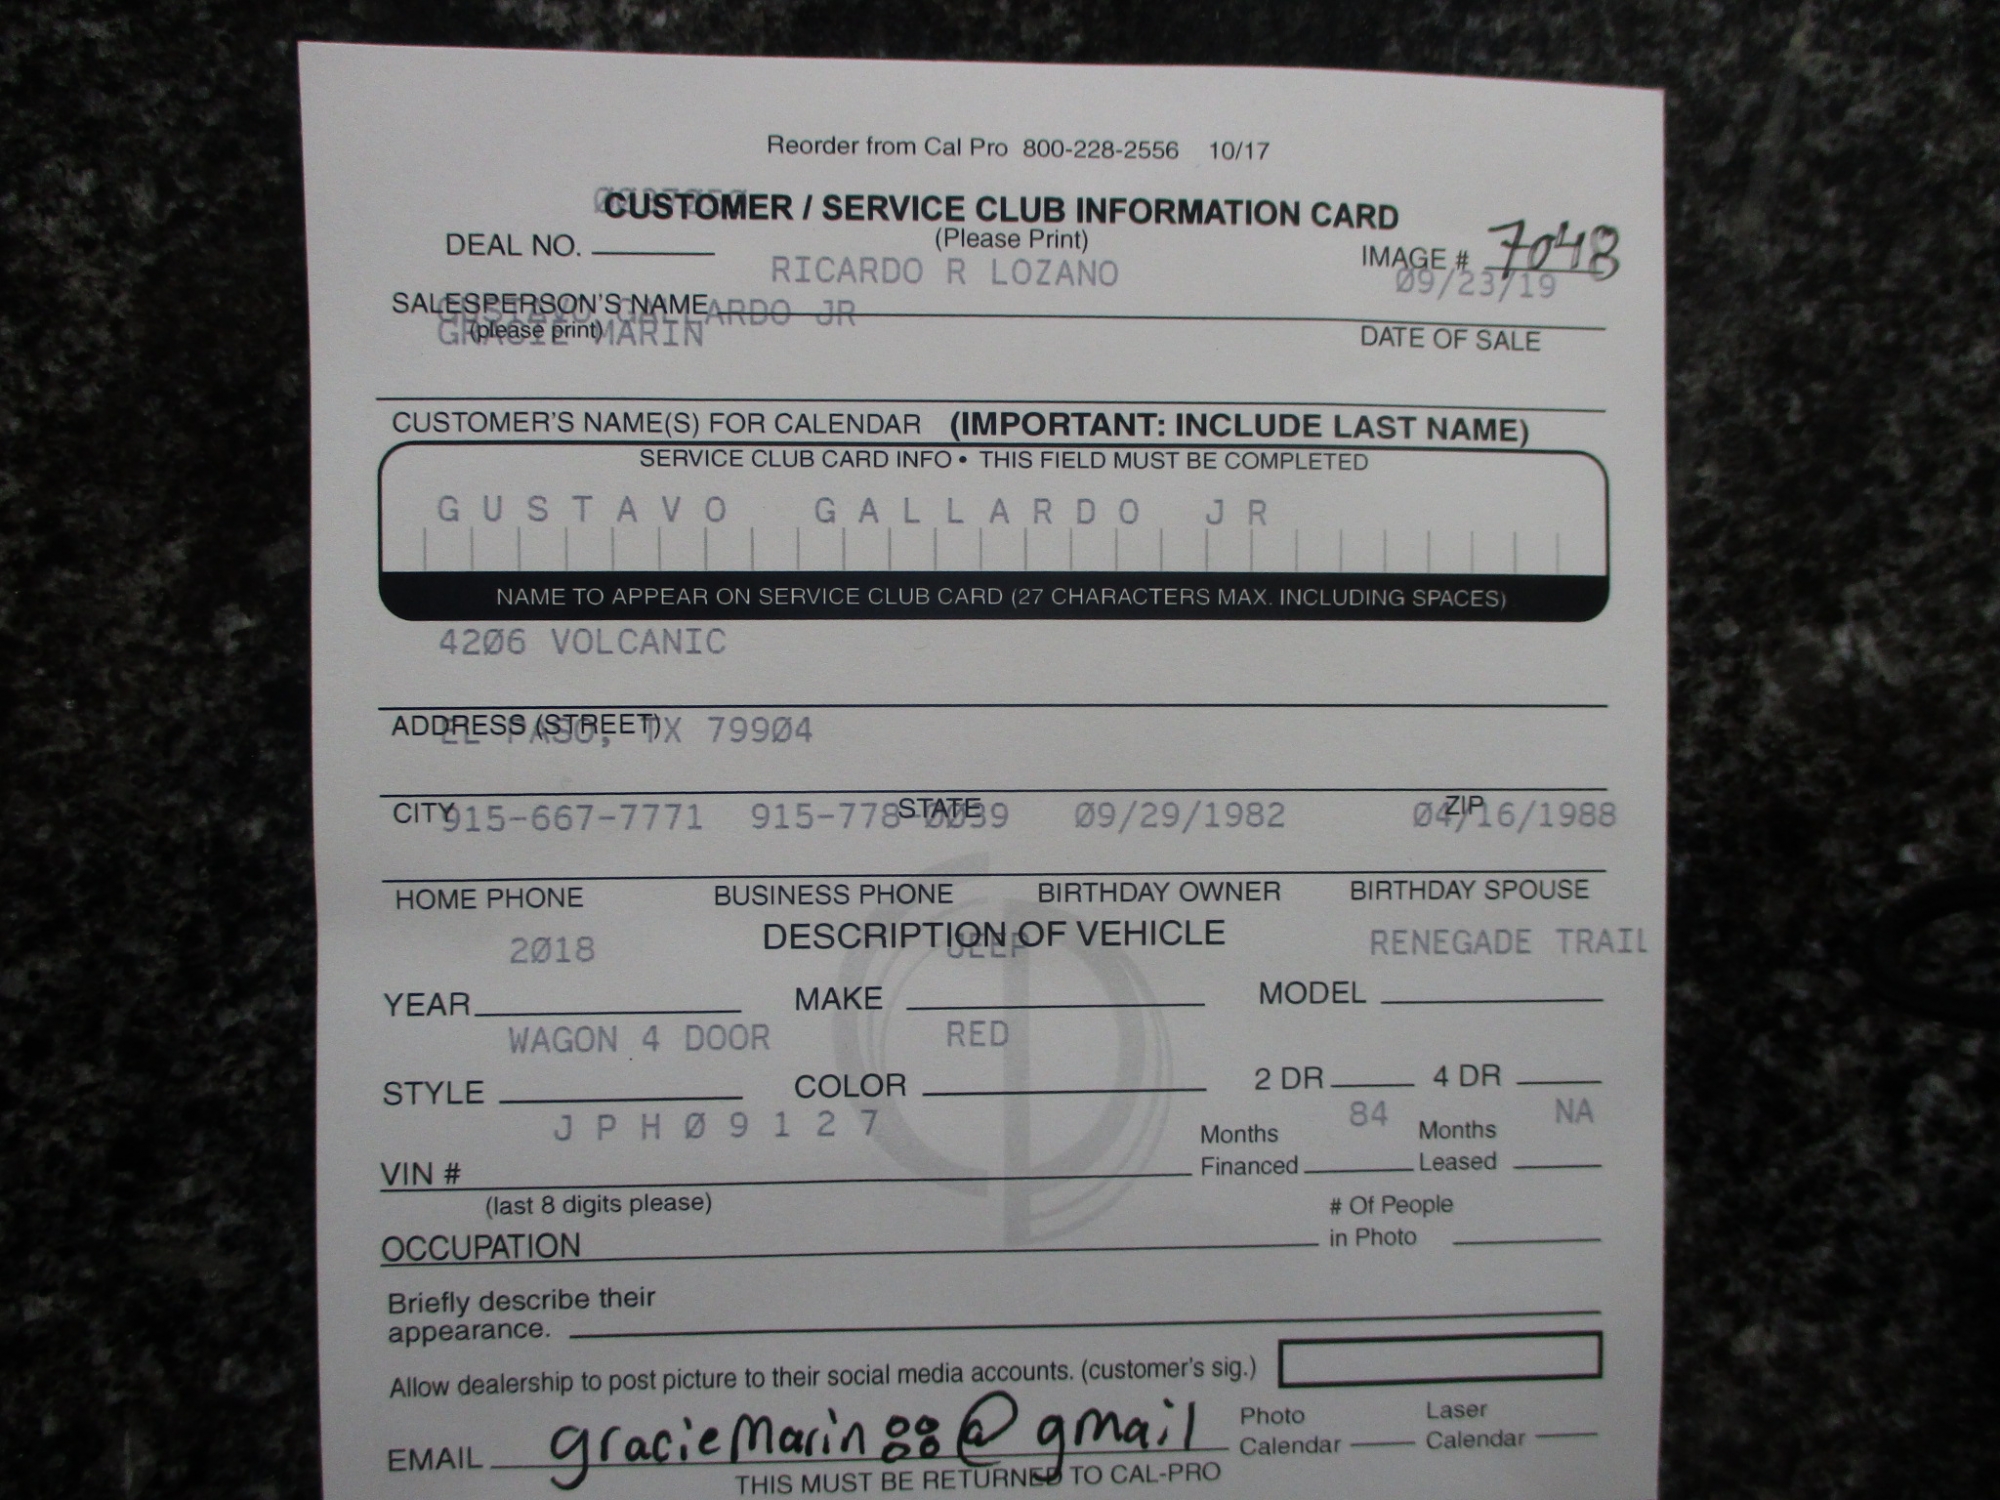 Reorder from Cal Pro 800-228-2556 10/17
CUSTOMER / SERVICE CLUB INFORMATION CARD
(Please Print)
DEAL NO.
IMAGE # 7048
RICARDO R LOZANO
09/23/19
SALESPERSON'S NAME
GUSTAVO GALLARDO JR
(please print)
GRACIE MARIN
DATE OF SALE
CUSTOMER'S NAME(S) FOR CALENDAR (IMPORTANT: INCLUDE LAST NAME)
SERVICE CLUB CARD INFO • THIS FIELD MUST BE COMPLETED
GUSTAVO GALLARDO JR
NAME TO APPEAR ON SERVICE CLUB CARD (27 CHARACTERS MAX. INCLUDING SPACES)
4206 VOLCANIC
ADDRESS (STREET)
EL PASO, TX 79904
CITY STATE ZIP
915-667-7771 915-778-0039 09/29/1982 04/16/1988
HOME PHONE BUSINESS PHONE BIRTHDAY OWNER BIRTHDAY SPOUSE
DESCRIPTION OF VEHICLE
2018 JEEP RENEGADE TRAIL
YEAR MAKE MODEL
WAGON 4 DOOR RED
STYLE COLOR 2 DR 4 DR
JPH09127 84 NA
VIN # Months Financed Months Leased
(last 8 digits please)
# Of People in Photo
OCCUPATION
Briefly describe their
appearance.
Allow dealership to post picture to their social media accounts. (customer's sig.)
EMAIL graciemarin88@gmail
Photo Calendar Laser Calendar
THIS MUST BE RETURNED TO CAL-PRO